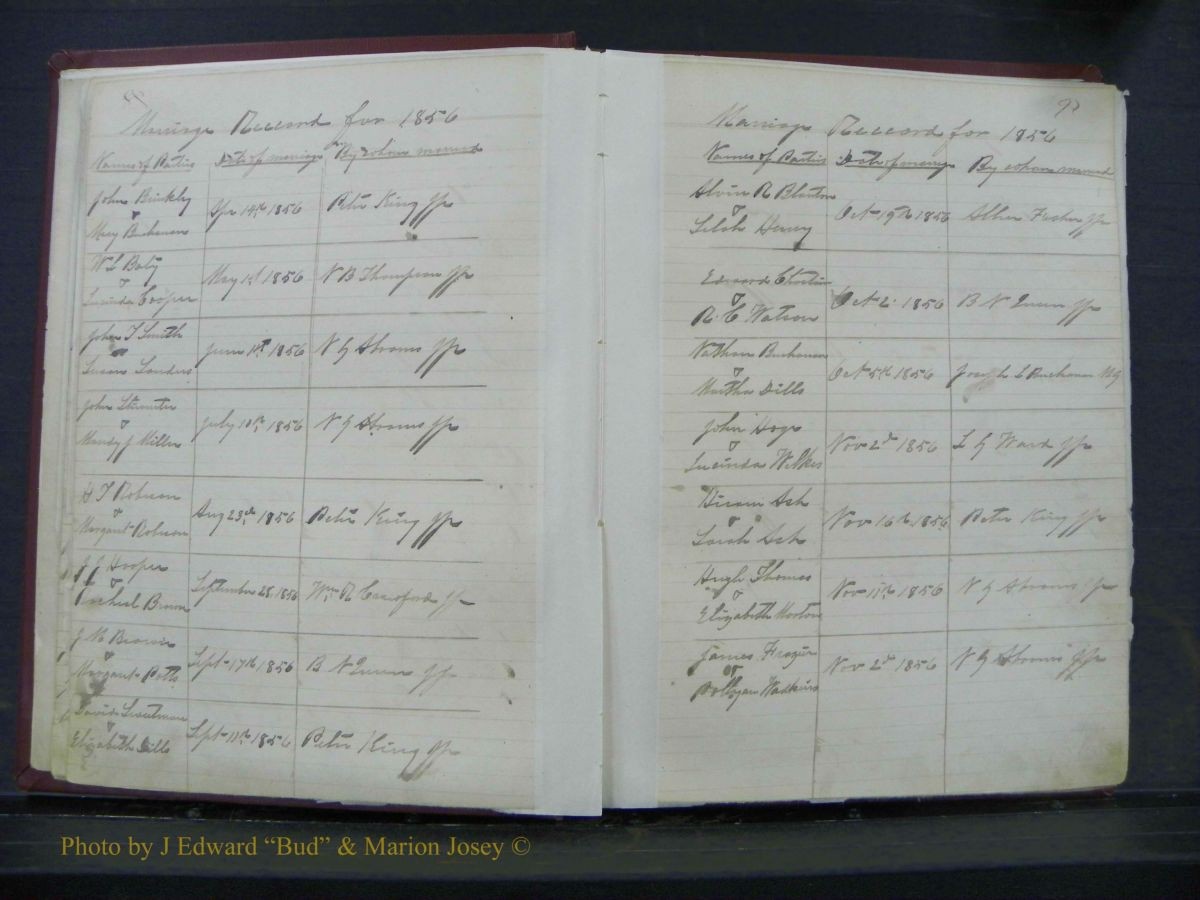 Marriage Record for 1856
Names of Parties Date of marriage By whom married
John Binkly
Apr 14th 1856 Peter King JP
Mary Buchanan
W L
May 1st 1856 N B Thompson JP
Lucinda Cooper
John T Smith
June 1856 N G Abrams JP
Susan Sanders
John
July 10th 1856 N G Abrams JP
J Miller
H T Robison
Aug 23d 1856 Peter King JP
Margaret Robison
J J Hooper
September 28 1856 Wm R Crawford JP
Racheal Brown
J M Brown
Sept 17th 1856 B N Queen JP
Margaret Potts
David
Sept 11th 1856 Peter King JP
Elizabeth Dills
97
Marriage Record for 1856
Names of Parties Date of marriage By whom married
Alvin R Blanton
Oct 19th 1856 Alben Fisher JP
Henry
Edward Christian
Oct 2 1856 B N Queen JP
R. C Watson
Nathan Buchanan
Oct 5th 1856 Joseph L Buchanan MG
Martha Dills
John Hoge
Nov 2d 1856 L G Ward JP
Lucinda Wilkes
Hiram Ash
Nov 16th 1856 Peter King JP
Sarah Ash
Hugh Thomas
Nov 11th 1856 N G Abrams JP
Elizabeth Norton
James Frazier
Nov 2d 1856 N G Abrams JP
Watkins
Photo by J Edward “Bud” & Marion Josey ©